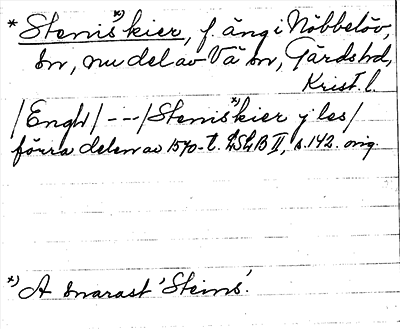 * Stenis*)kier, f. äng i Nöbbelöv,
sn, nu del av Vä sn, Gärds hd,
Krist. l.
/Engh/ --- /Stenis*)kier j les/
förra delen av 1570-t. LSLB II, s. 142. orig.
*) A snarast 'Steins'.